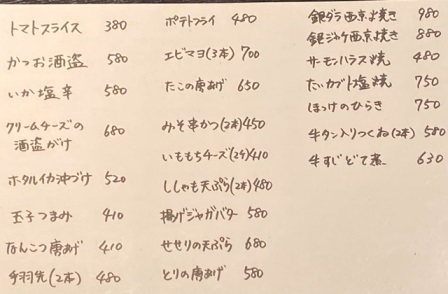 トマトスライス 380
かつお酒盗 580
いか塩辛 580
クリームチーズの
酒盗がけ 680
ホタルイカ沖づけ 520
玉子つまみ 410
なんこつ唐あげ 410
手羽先(2本) 480
ポテトフライ 480
エビマヨ(3本) 700
たこの唐あげ 650
みそ串かつ(2本) 450
いももちチーズ(2ケ) 410
ししゃも天ぷら(2本) 480
揚げジャガバター 580
せせりの天ぷら 680
とりの唐あげ 580
銀ダラ西京焼き 980
銀ジャケ西京焼き 880
サーモンハラス焼 480
たいカブト塩焼 750
ほっけのひらき 750
牛タン入りつくね(2本) 580
牛すじどて煮 630